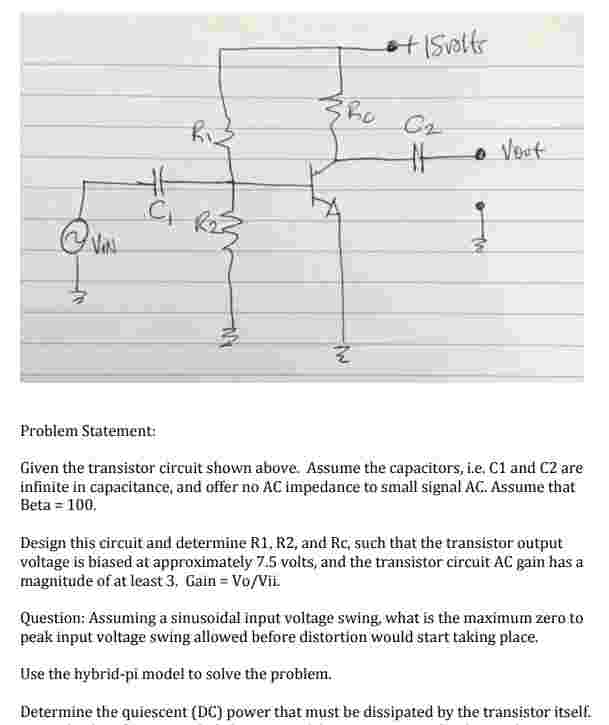 +15volts
Rc
C2
R1
Vout
C1
R2
VIN
Problem Statement:
Given the transistor circuit shown above. Assume the capacitors, i.e. C1 and C2 are
infinite in capacitance, and offer no AC impedance to small signal AC. Assume that
Beta = 100.
Design this circuit and determine R1, R2, and Rc, such that the transistor output
voltage is biased at approximately 7.5 volts, and the transistor circuit AC gain has a
magnitude of at least 3. Gain = Vo/Vii.
Question: Assuming a sinusoidal input voltage swing, what is the maximum zero to
peak input voltage swing allowed before distortion would start taking place.
Use the hybrid-pi model to solve the problem.
Determine the quiescent (DC) power that must be dissipated by the transistor itself.